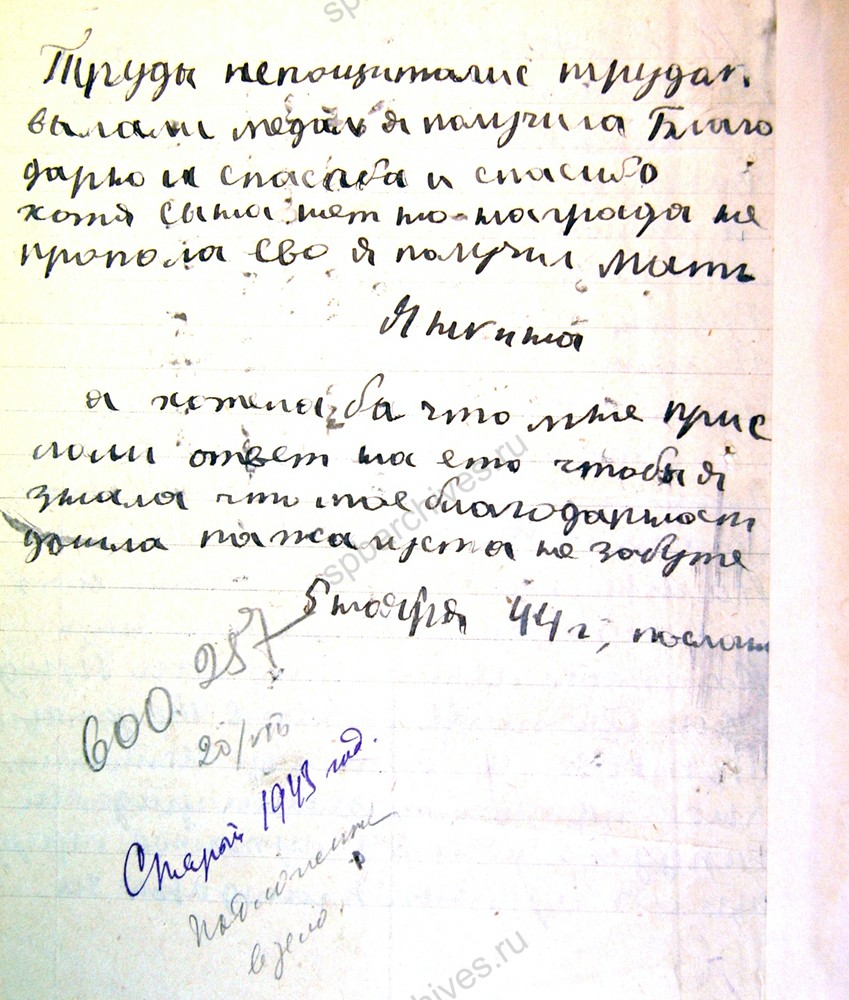 Труды непощиталис трудам
вылали медаль я получила Благо
дарю и спасиба и спасибо
хотя сына нет но награда не
пропола Ево я получил мать
Яшкина
я хотела ба что мне прис
лоли ответ на ето чтобы я
знала что мое благодарност
дошла пажалуста не забуте
5 ноября 44 г, послан
257
600
20/VIII
Старой 1943 год.
Подлинник
в дело.
spbarchives.ru